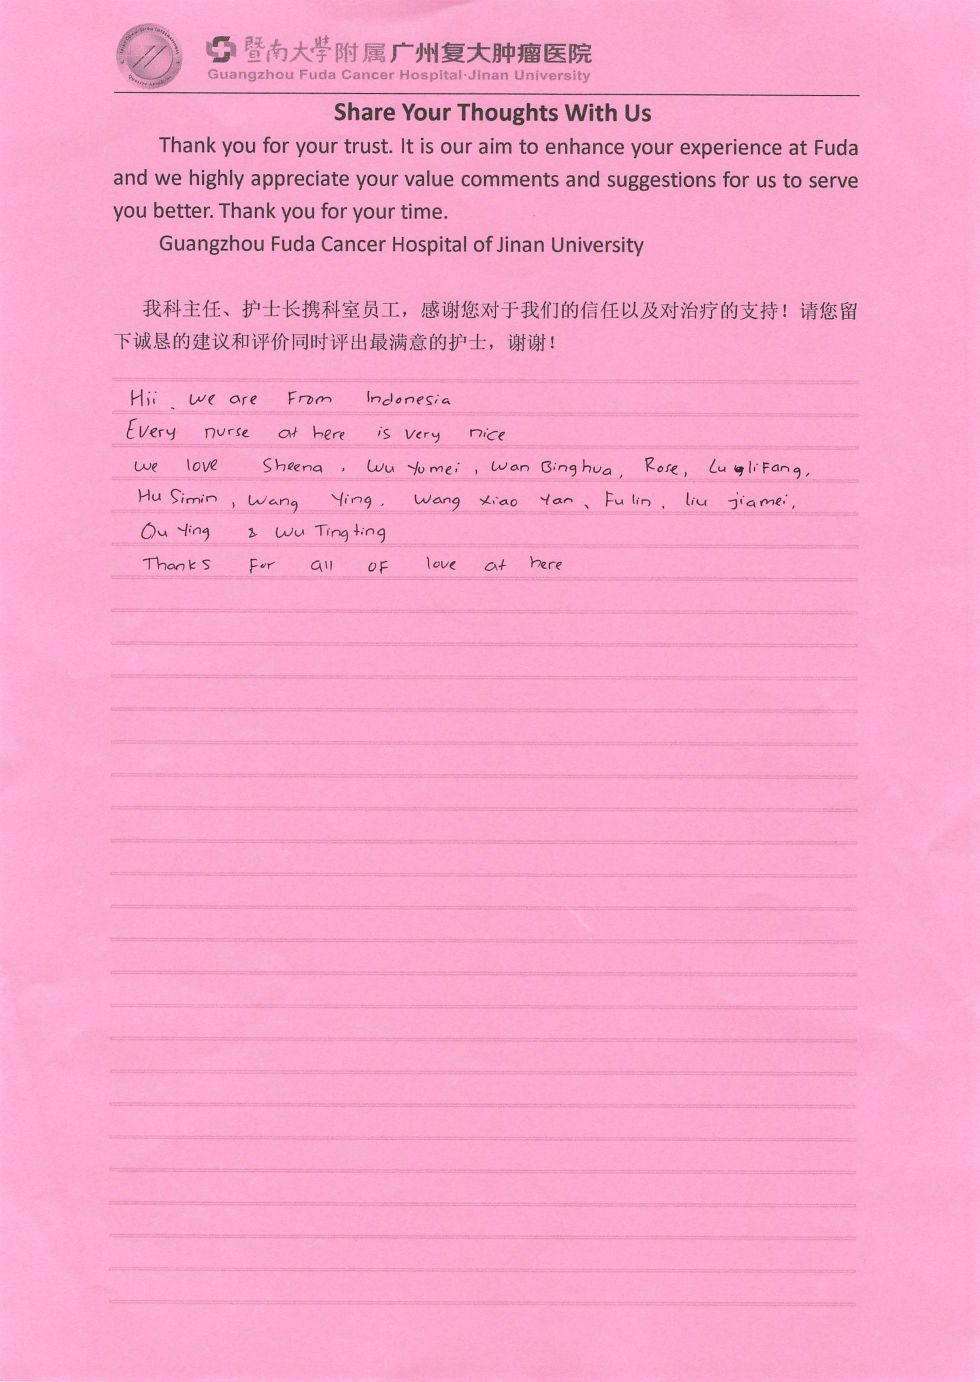 暨南大學附属广州复大肿瘤医院
Guangzhou Fuda Cancer Hospital·Jinan University
Share Your Thoughts With Us
Thank you for your trust. It is our aim to enhance your experience at Fuda
and we highly appreciate your value comments and suggestions for us to serve
you better. Thank you for your time.
Guangzhou Fuda Cancer Hospital of Jinan University
我科主任、护士长携科室员工，感谢您对于我们的信任以及对治疗的支持！请您留
下诚恳的建议和评价同时评出最满意的护士，谢谢！
Hii, we are From Indonesia
Every nurse at here is very nice
we love Sheena, Wu Yumei, Wan Binghua, Rose,
Hu Simin, Wang Ying, Wang Xiao Yan, Fu lin, liu jiamei,
Ou Ying & Wu Tingting
Thanks For all OF love at here